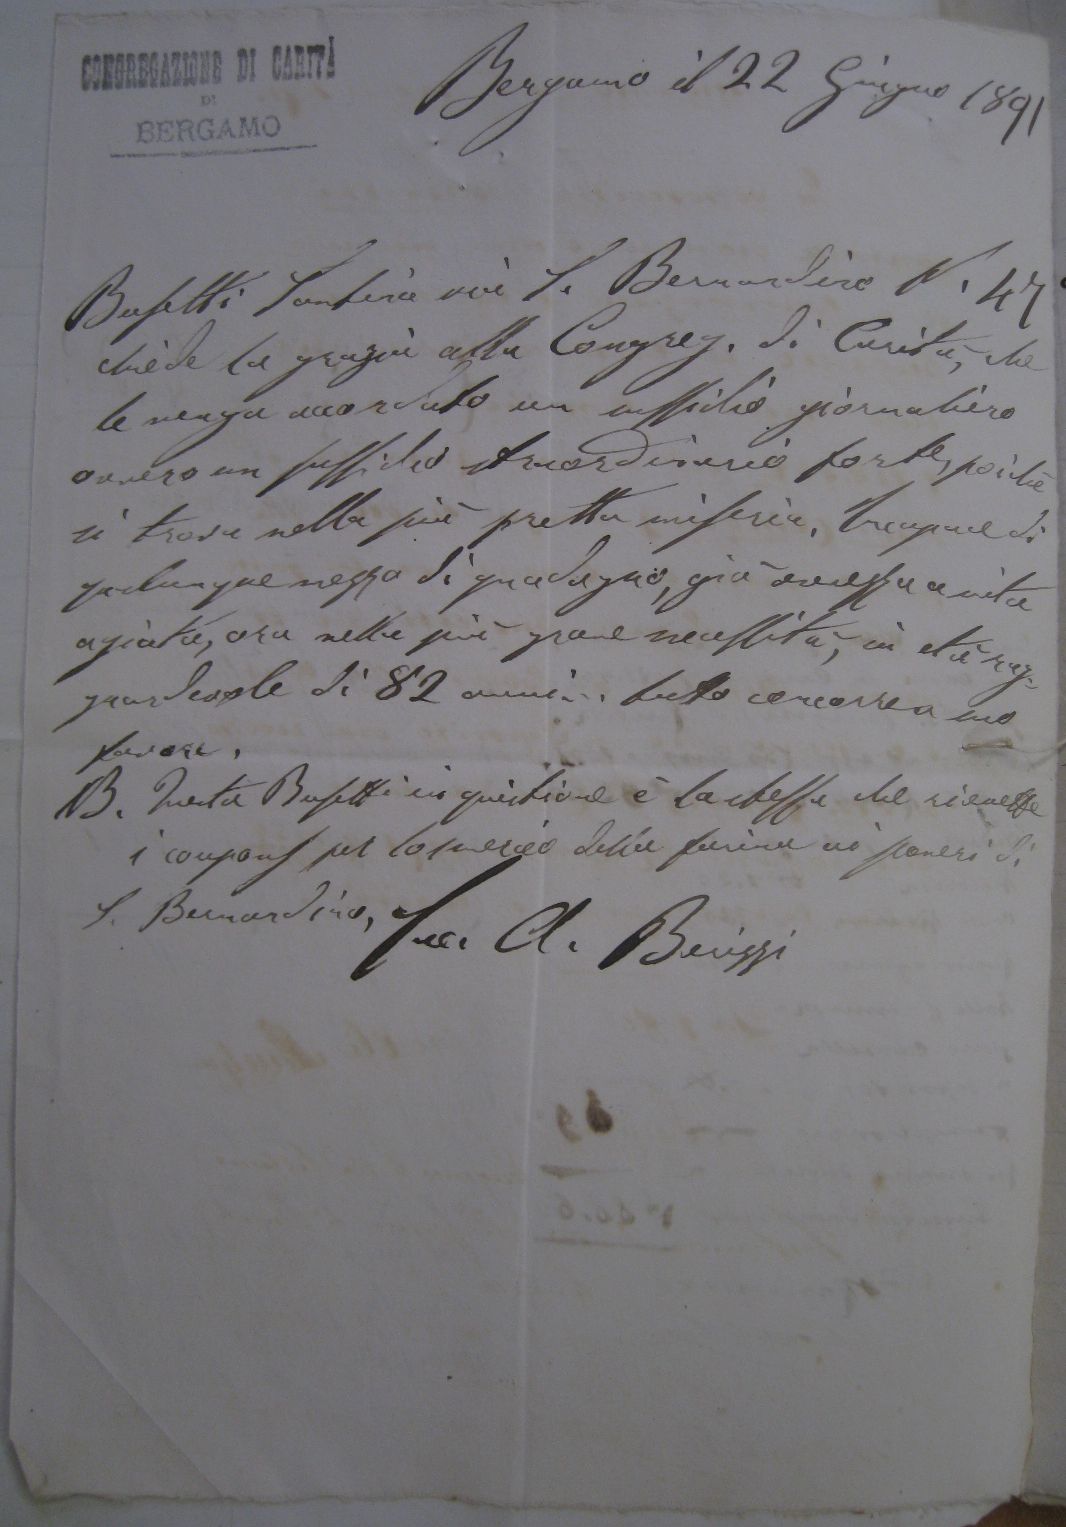 CONGREGAZIONE DI CARITÀ
DI
BERGAMO
Bergamo il 22 Giugno 1891
Busetti Santina via S. Bernardino N. 47
chiede la grazia alla Congreg. di Carità, che
le venga accordato un sussidio giornaliero
ovvero un sussidio straordinario forte, poichè
si trova nella più pretta miseria. Incapace di
qualunque mezzo di guadagno, già avvezza a vita
agiata, ora nella più grave necessità, in età rag-
guardevole di 82 anni... tutto concorre a suo
favore.
B. Questa Busetti in quistione è la stessa che ricevette
i coupons per lo smercio della farina ai poveri di
S. Bernardino,
A. Benizzi